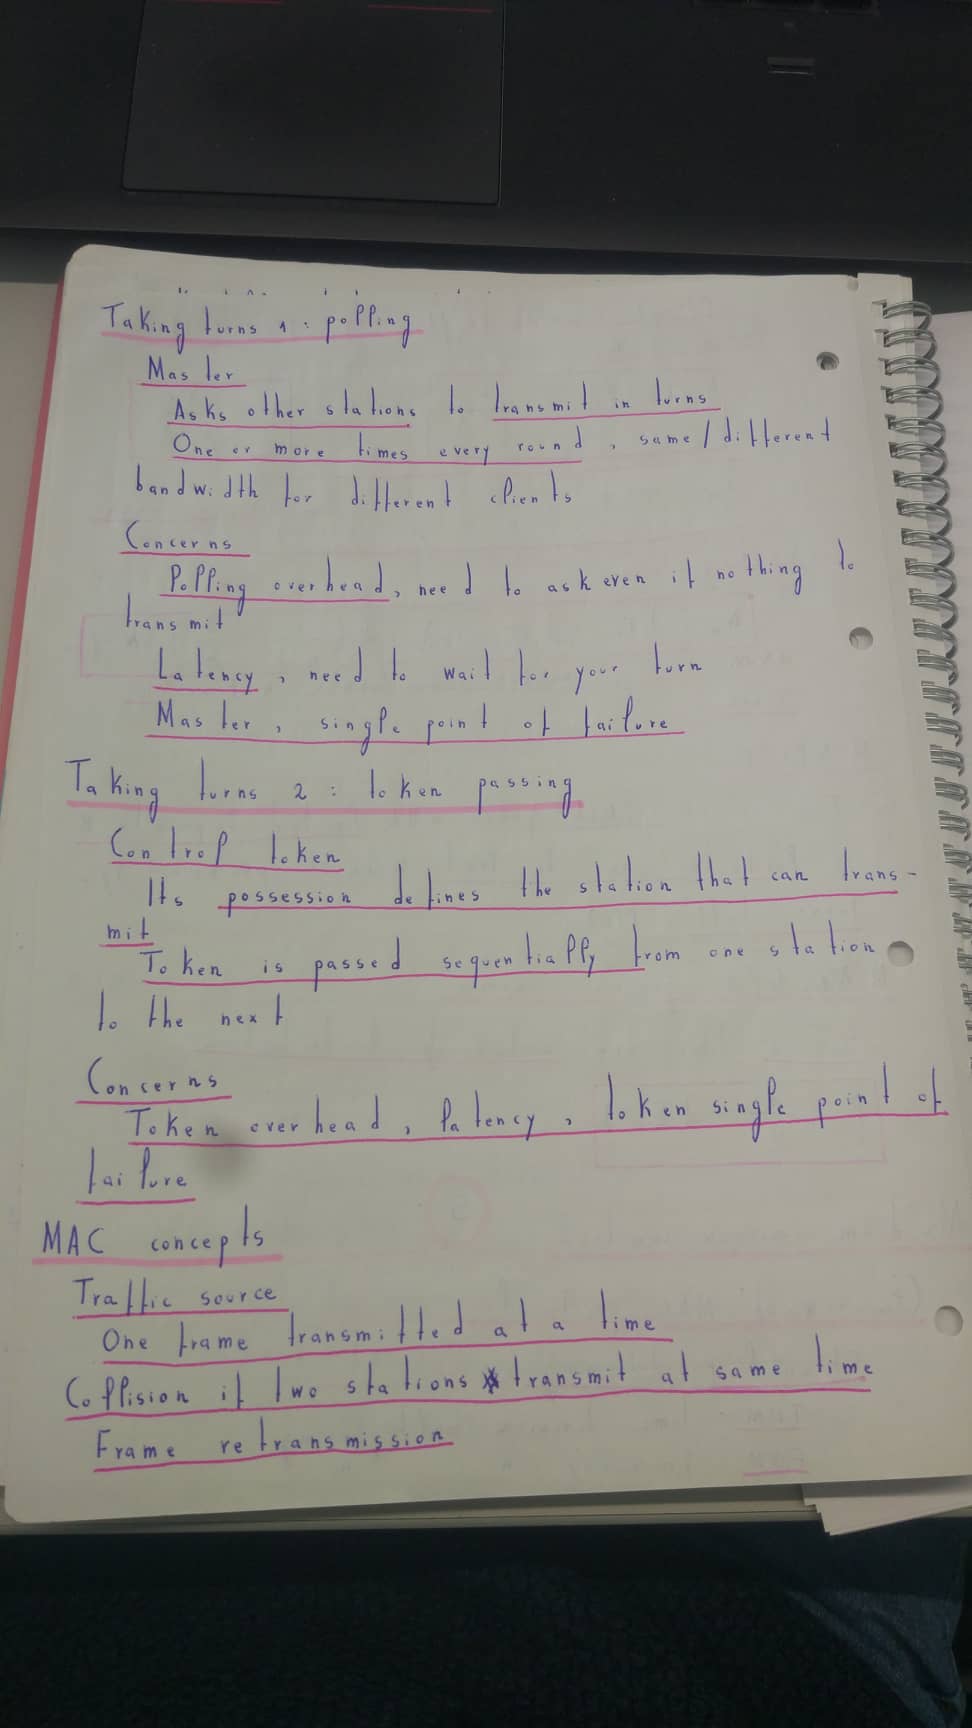 Taking turns 1 : polling
Master
Asks other stations to transmit in turns
One or more times every round , same/different
bandwidth for different clients
Concerns
Polling overhead, need to ask even if nothing to
transmit
Latency , need to wait for your turn
Master , single point of failure
Taking turns 2 : token passing
Control token
Its possession defines the station that can trans-
mit
Token is passed sequentially from one station
to the next
Concerns
Token overhead , latency , token single point of
failure
MAC concepts
Traffic source
One frame transmitted at a time
Collision if two stations transmit at same time
Frame retransmission